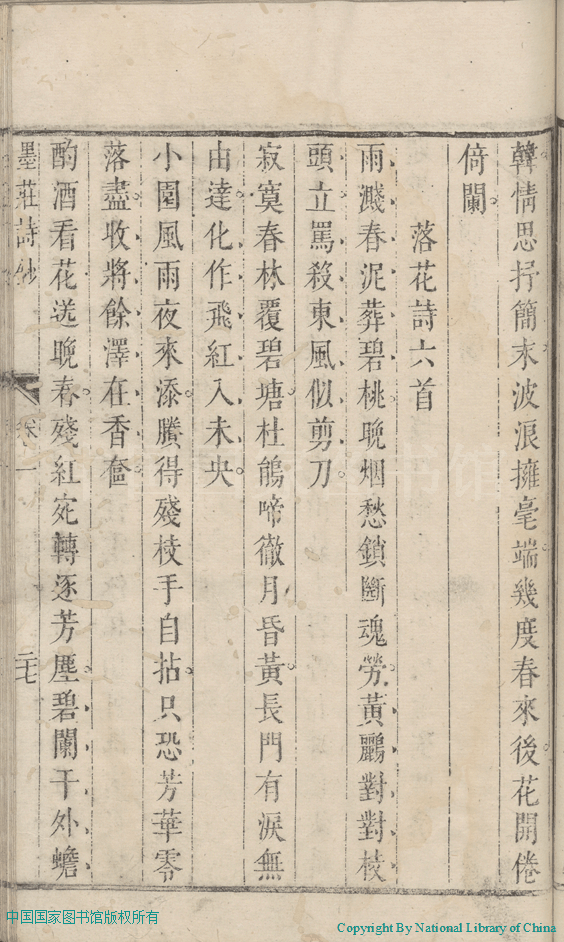 韓情思抒簡末波浪擁毫端幾度春來後花開倦
倚闌
落花詩六首
雨濺春泥葬碧桃晚烟愁鎖斷魂勞黃鸝對對棱
頭立罵殺東風似剪刀
寂寞春林覆碧塘杜鵑啼徹月昏黃長門有淚無
由達化作飛紅入未央
小園風雨夜來添賸得殘棱手自拈只恐芳華零
落盡收將餘澤在香奩
酌酒看花送晚春殘紅宛轉逐芳塵碧闌干外蟾
墨莊詩鈔 卷一 二七
中国国家图书馆版权所有
Copyright By National Library of China